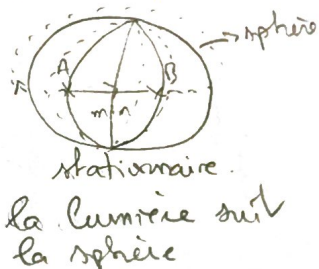 sphère
A B
m n
stationnaire
la lumière suit
la sphère